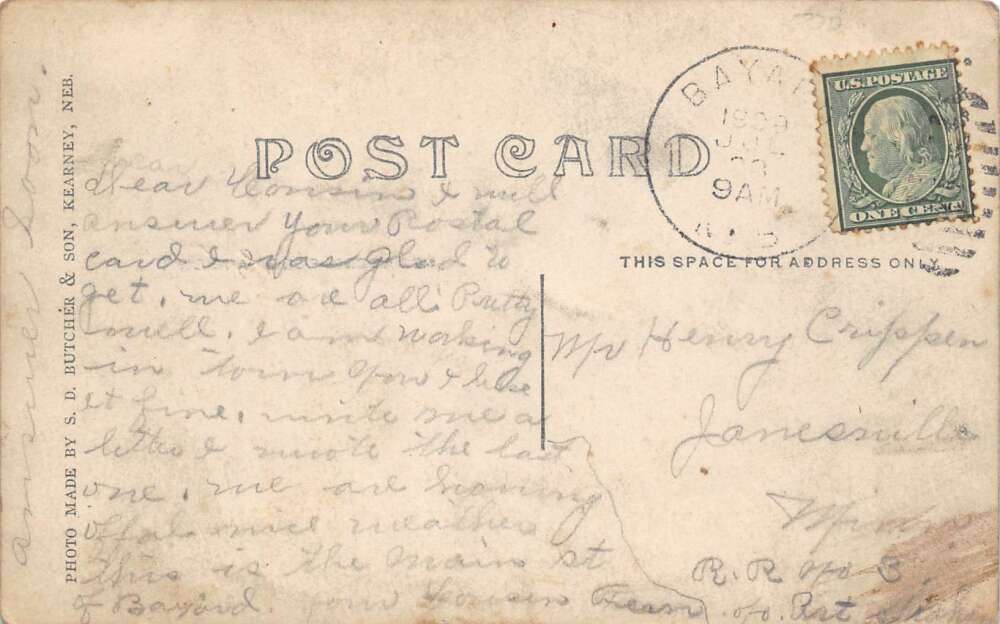 answer soon.
PHOTO MADE BY S. D. BUTCHER & SON, KEARNEY, NEB.
POST CARD
Dear Cousin I will
answer your Postal
card I was glad to
get. we are all Pretty
well. I am working
in town now & like
it fine. write me a
letter I wrote the last
one. we are having
offal nice weather
this is the main st
of Bayard. your Cousin Fern
BAYARD
1909
9 AM
U.S. POSTAGE
ONE CENT
THIS SPACE FOR ADDRESS ONLY
Mr Henry Crippen
Janesville
Minn
R.R No 3.
c/o Art